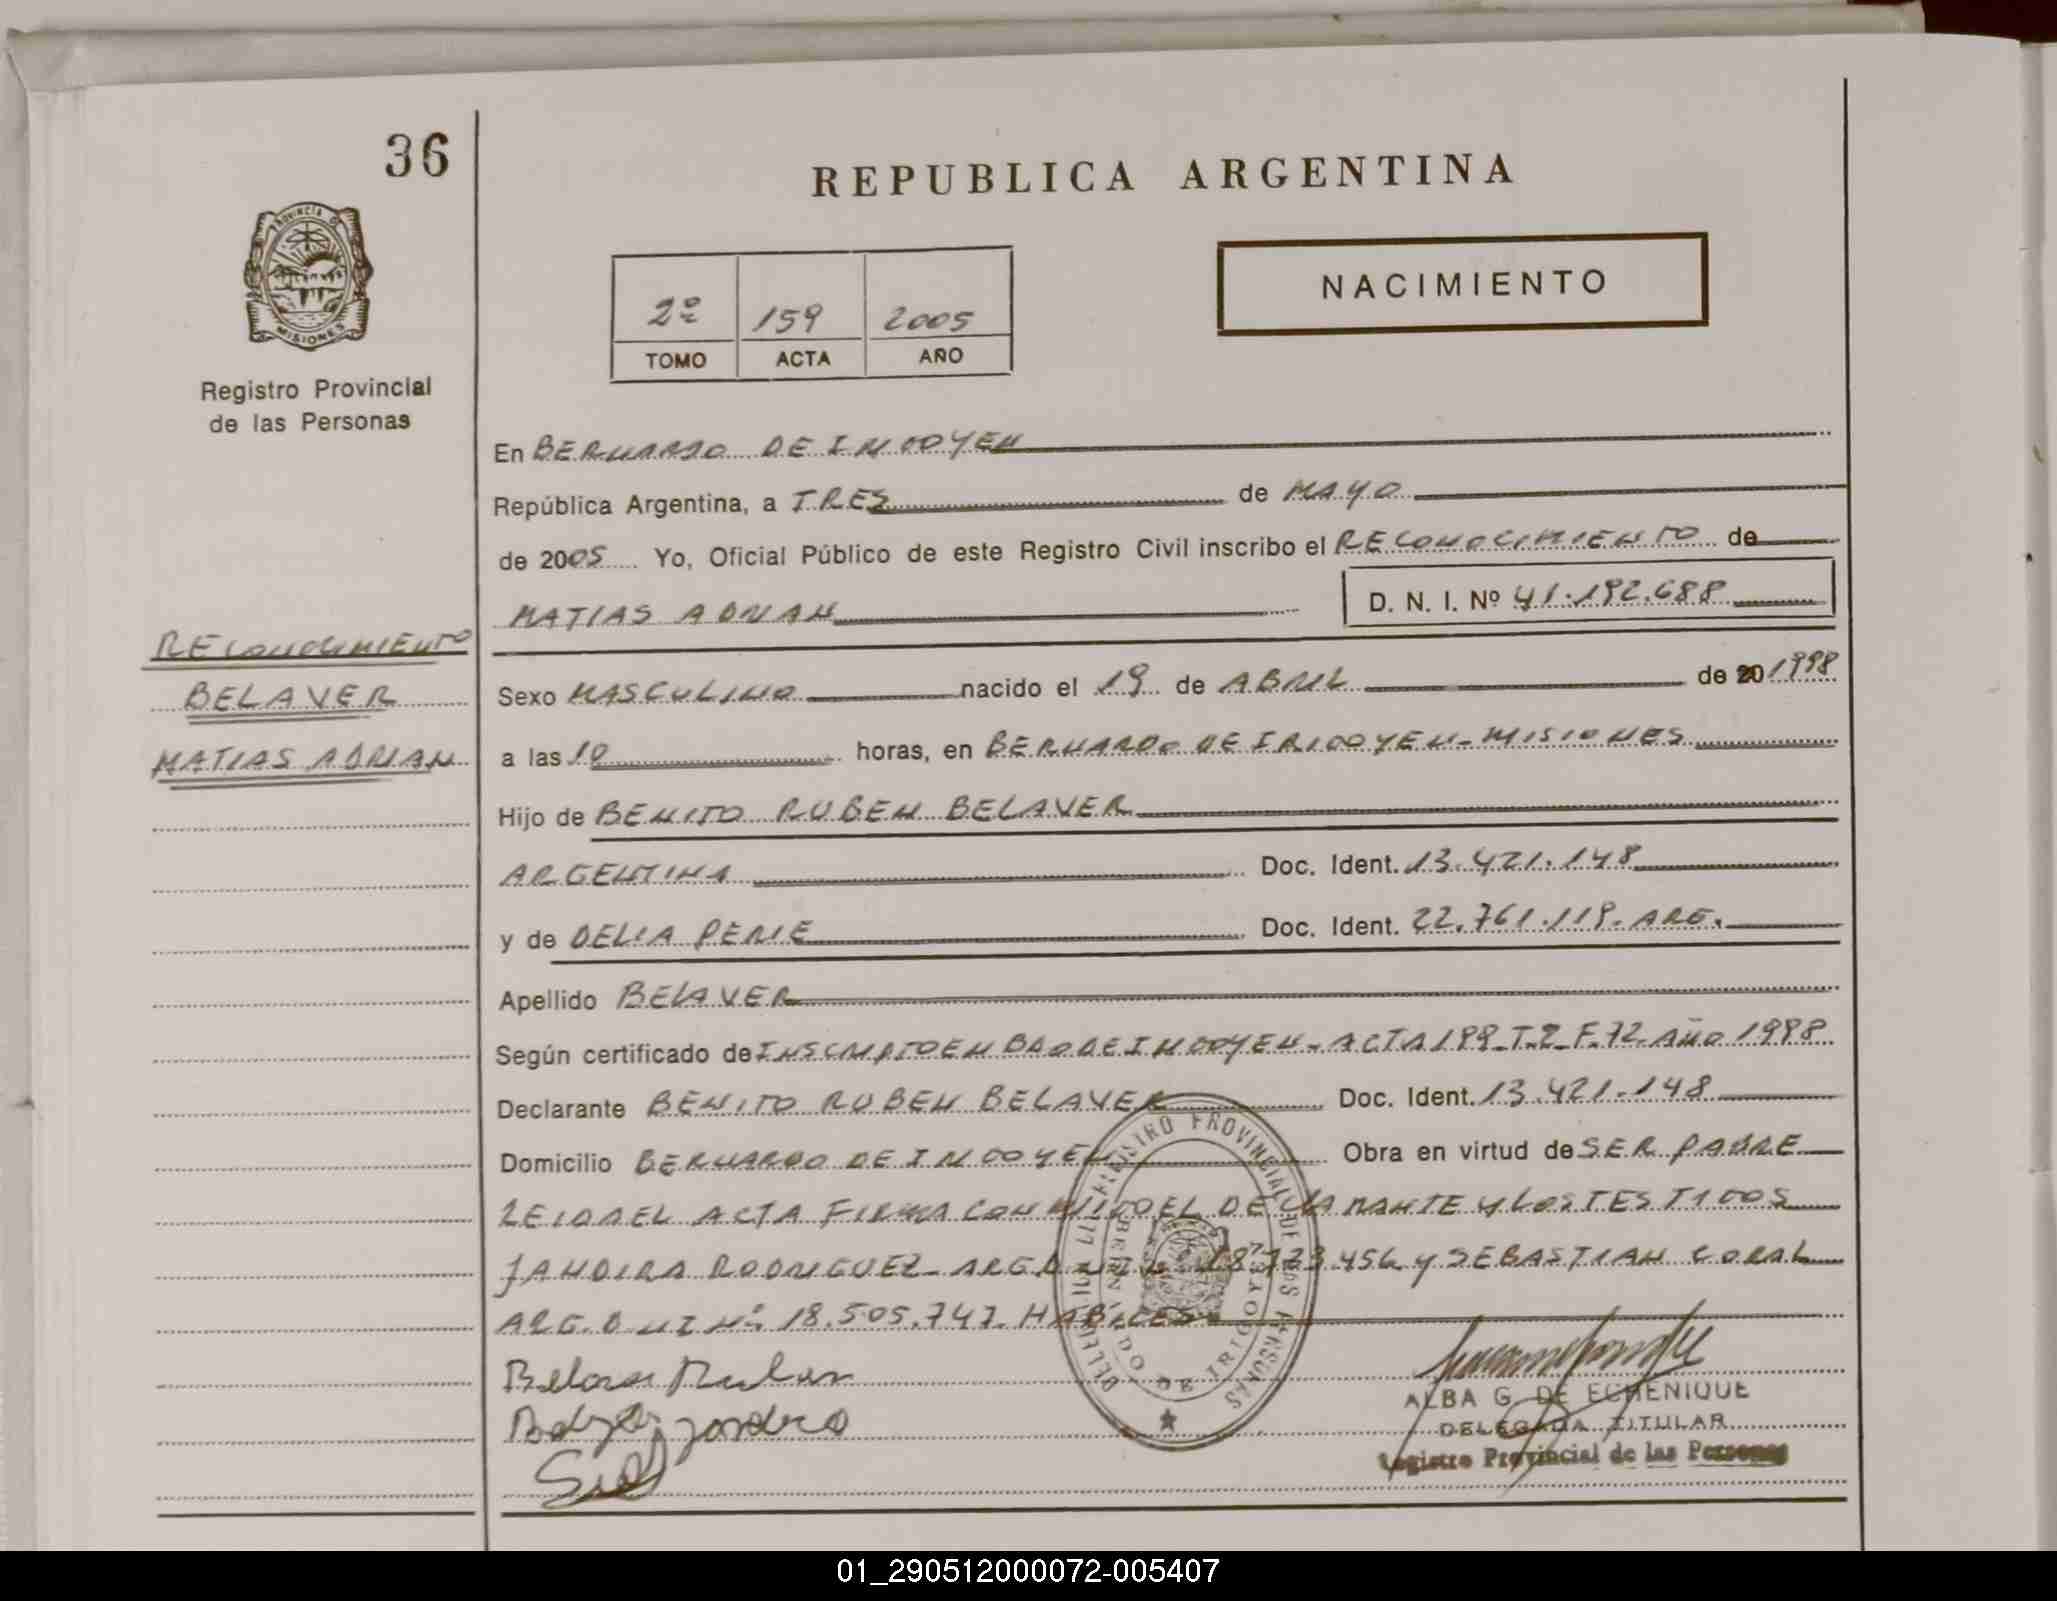 36
REPUBLICA ARGENTINA
PROVINCIA DE
MISIONES
NACIMIENTO
2º 159 2005
TOMO ACTA AÑO
Registro Provincial
de las Personas
En BERNARDO DE IRIGOYEN
República Argentina, a TRES de MAYO
de 2005 Yo, Oficial Público de este Registro Civil inscribo el RECONOCIMIENTO de
MATIAS ADRIAN D. N. I. Nº 41.192.688
RECONOCIMIENTO
BELAVER
MATIAS ADRIAN
Sexo MASCULINO nacido el 19 de ABRIL de 20 1998
a las 10 horas, en BERNARDO DE IRIGOYEN - MISIONES
Hijo de BENITO RUBEN BELAVER
ARGENTINA Doc. Ident. 13.421.148
y de DELIA Doc. Ident. 22.761.119. ARG.
Apellido BELAVER
Según certificado de INSCRIPTO EN BDO DE IRIGOYEN - ACTA 199 - T.2 - F.72 AÑO 1998
Declarante BENITO RUBEN BELAVER Doc. Ident. 13.421.148
Domicilio BERNARDO DE IRIGOYEN Obra en virtud de SER PADRE
LEIDA EL ACTA FIRMA CONMIGO EL DECLARANTE Y LOS TESTIGOS
JANDIRA RODRIGUEZ - ARG. 18.723.456 Y SEBASTIAN CORAL
ARG. D.N.I Nº 18.505.747. HABILES
REGISTRO PROVINCIAL DE LAS PERSONAS
BERNARDO DE IRIGOYEN
ALBA G. DE ECHENIQUE
DELEGADA TITULAR
Registro Provincial de las Personas
01_290512000072-005407